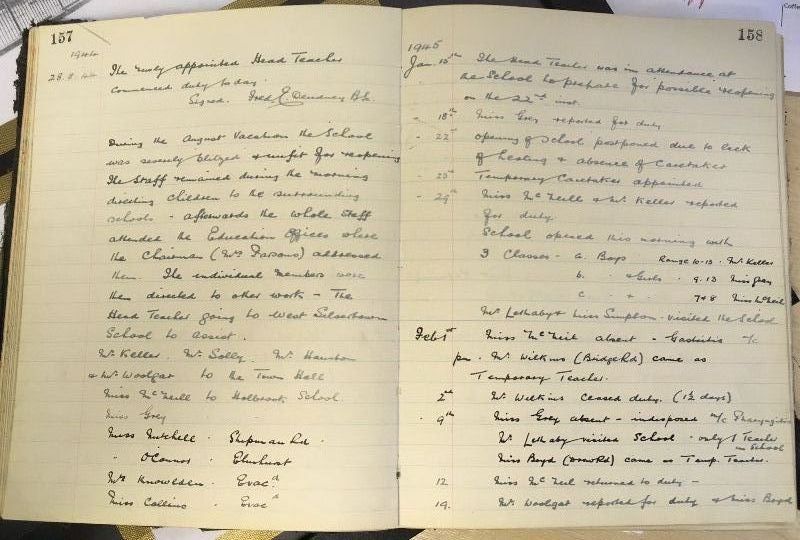 157
1944
28.8.44 The newly appointed Head Teacher
commenced duty today.
Signed. Fred C. Dendney B.Sc.
During the August Vacation the School
was severely blitzed & unfit for reopening
The Staff remained during the morning
directing children to the surrounding
schools - afterwards the whole Staff
attended the Education Offices where
the Chairman (Mrs Parsons) addressed
them. The individual members were
then directed to other work - The
Head Teacher going to West Silvertown
School to assist.
Mr Keller. Mr Solly. Mr Houston
& Mr Woolgar to the Town Hall
Miss McNeill to Holbrook School
Miss Grey
Miss Mitchell . Shipman Rd.
" O'Connor . Elmhurst
Mrs Knowlden . Evac.n
Miss Collins . Evac n
158
1945
Jan. 15th The Head Teacher was in attendance at
the School to prepare for possible reopening
on the 22nd inst.
- 18th Miss Grey reported for duty
- 22nd opening of School postponed due to lack
of heating & absence of Caretaker
- 25th Temporary Caretaker appointed
- 29th Miss McNeill & Mr Keller reported
for duty
School opened this morning with
3 Classes - a. Boys Range 10-13 . Mr Keller
b. " & Girls . 9.13 Miss Grey
c. " + " 7+8 Miss McNeil
Mr Lethaby & Miss Simpson visited the School
Feb 1st Miss McNeil absent - Gastritis m/c
pm. Mr Wilkins (Bridge Rd) came as
Temporary Teacher.
2nd Mr Wilkins ceased duty. (1½ days)
. 9th Miss Grey absent - indisposed m/c Pharyngitis
Mr Lethaby visited School - only 1 Teacher
in School
Miss Boyd (Drew Rd) came as Temp. Teacher.
12 Miss McNeil returned to duty -
19. Mr Woolgar reported for duty & Miss Boyd